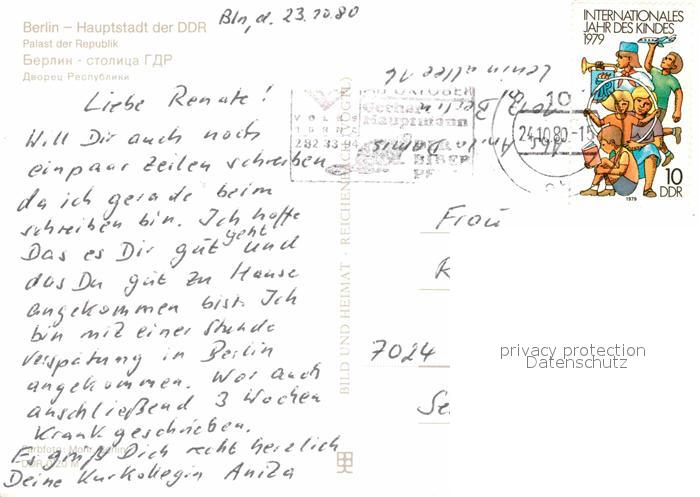 Bln, d. 23.10.80
Berlin – Hauptstadt der DDR
Palast der Republik
Берлин · столица ГДР
Дворец Республики
Liebe Renate!
Will Dir auch noch
einpaar Zeilen schreiben
da ich gerade beim
schreiben bin. Ich hoffe
Das es Dir gut geht und
das Du gut zu Hause
angekommen bist. Ich
bin mit einer Stunde
Verspätung in Berlin
angekommen. War auch
anschließend 3 Wochen
Krank geschrieben.
Es grüßt Dich recht herzlich
Deine Kurkollegin Anita
BILD UND HEIMAT · REICHENBACH (VOGTL)
Abs. Anita
Berlin
Leninallee 16
OKTOBER
Gerhart
Hauptmann
24.10.80-15
INTERNATIONALES
JAHR DES KINDES
1979
10
DDR
1979
Frau
K
7024
Se
privacy protection
Datenschutz